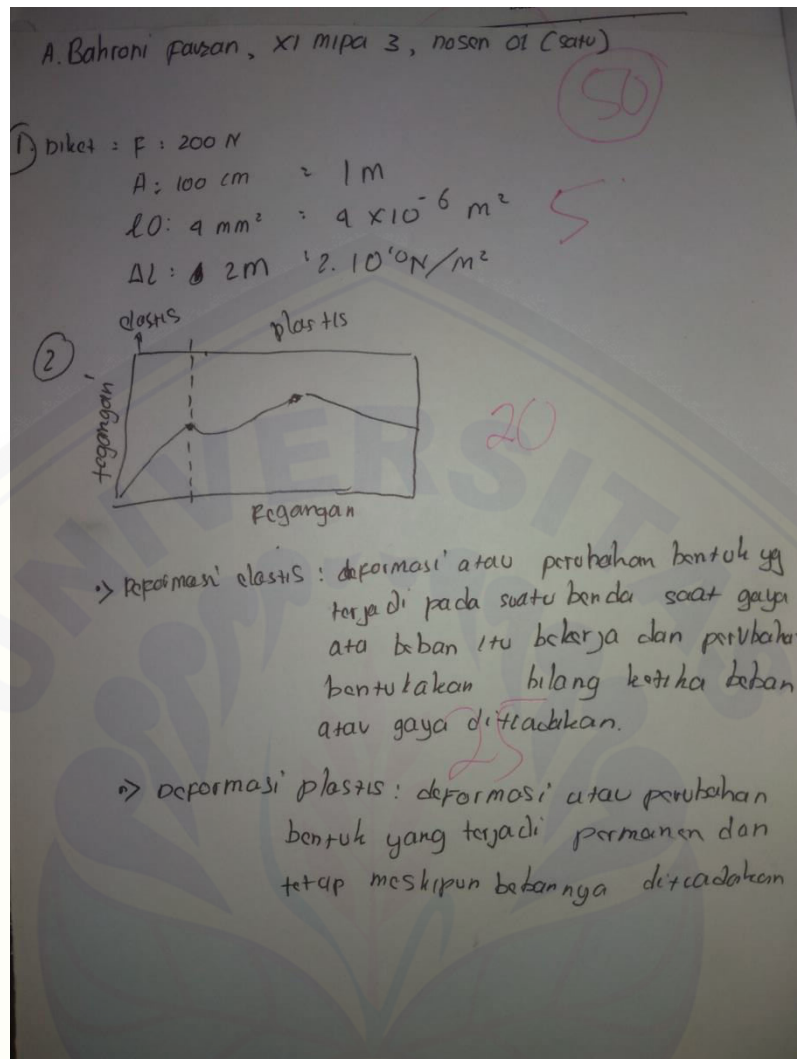 A. Bahroni Fauzan, XI mipa 3, nosen 01 (satu)
50
1) Diket : F : 200 N
A : 100 cm = 1 m
l0 : 4 mm² : 4 x10⁻⁶ m²
5
Δl : 2m : 2.10¹⁰N/m²
elastis
plastis
2
tegangan
20
Regangan
•> Deformasi elastis : deformasi atau perubahan bentuk yg
terjadi pada suatu benda saat gaya
ata beban itu bekerja dan perubaha
bentukakan hilang ketika beban
atau gaya ditiadakan.
25
•> Deformasi plastis : deformasi atau perubahan
bentuk yang terjadi permanen dan
tetap meskipun bebannya ditiadakan
UNIVERSITAS